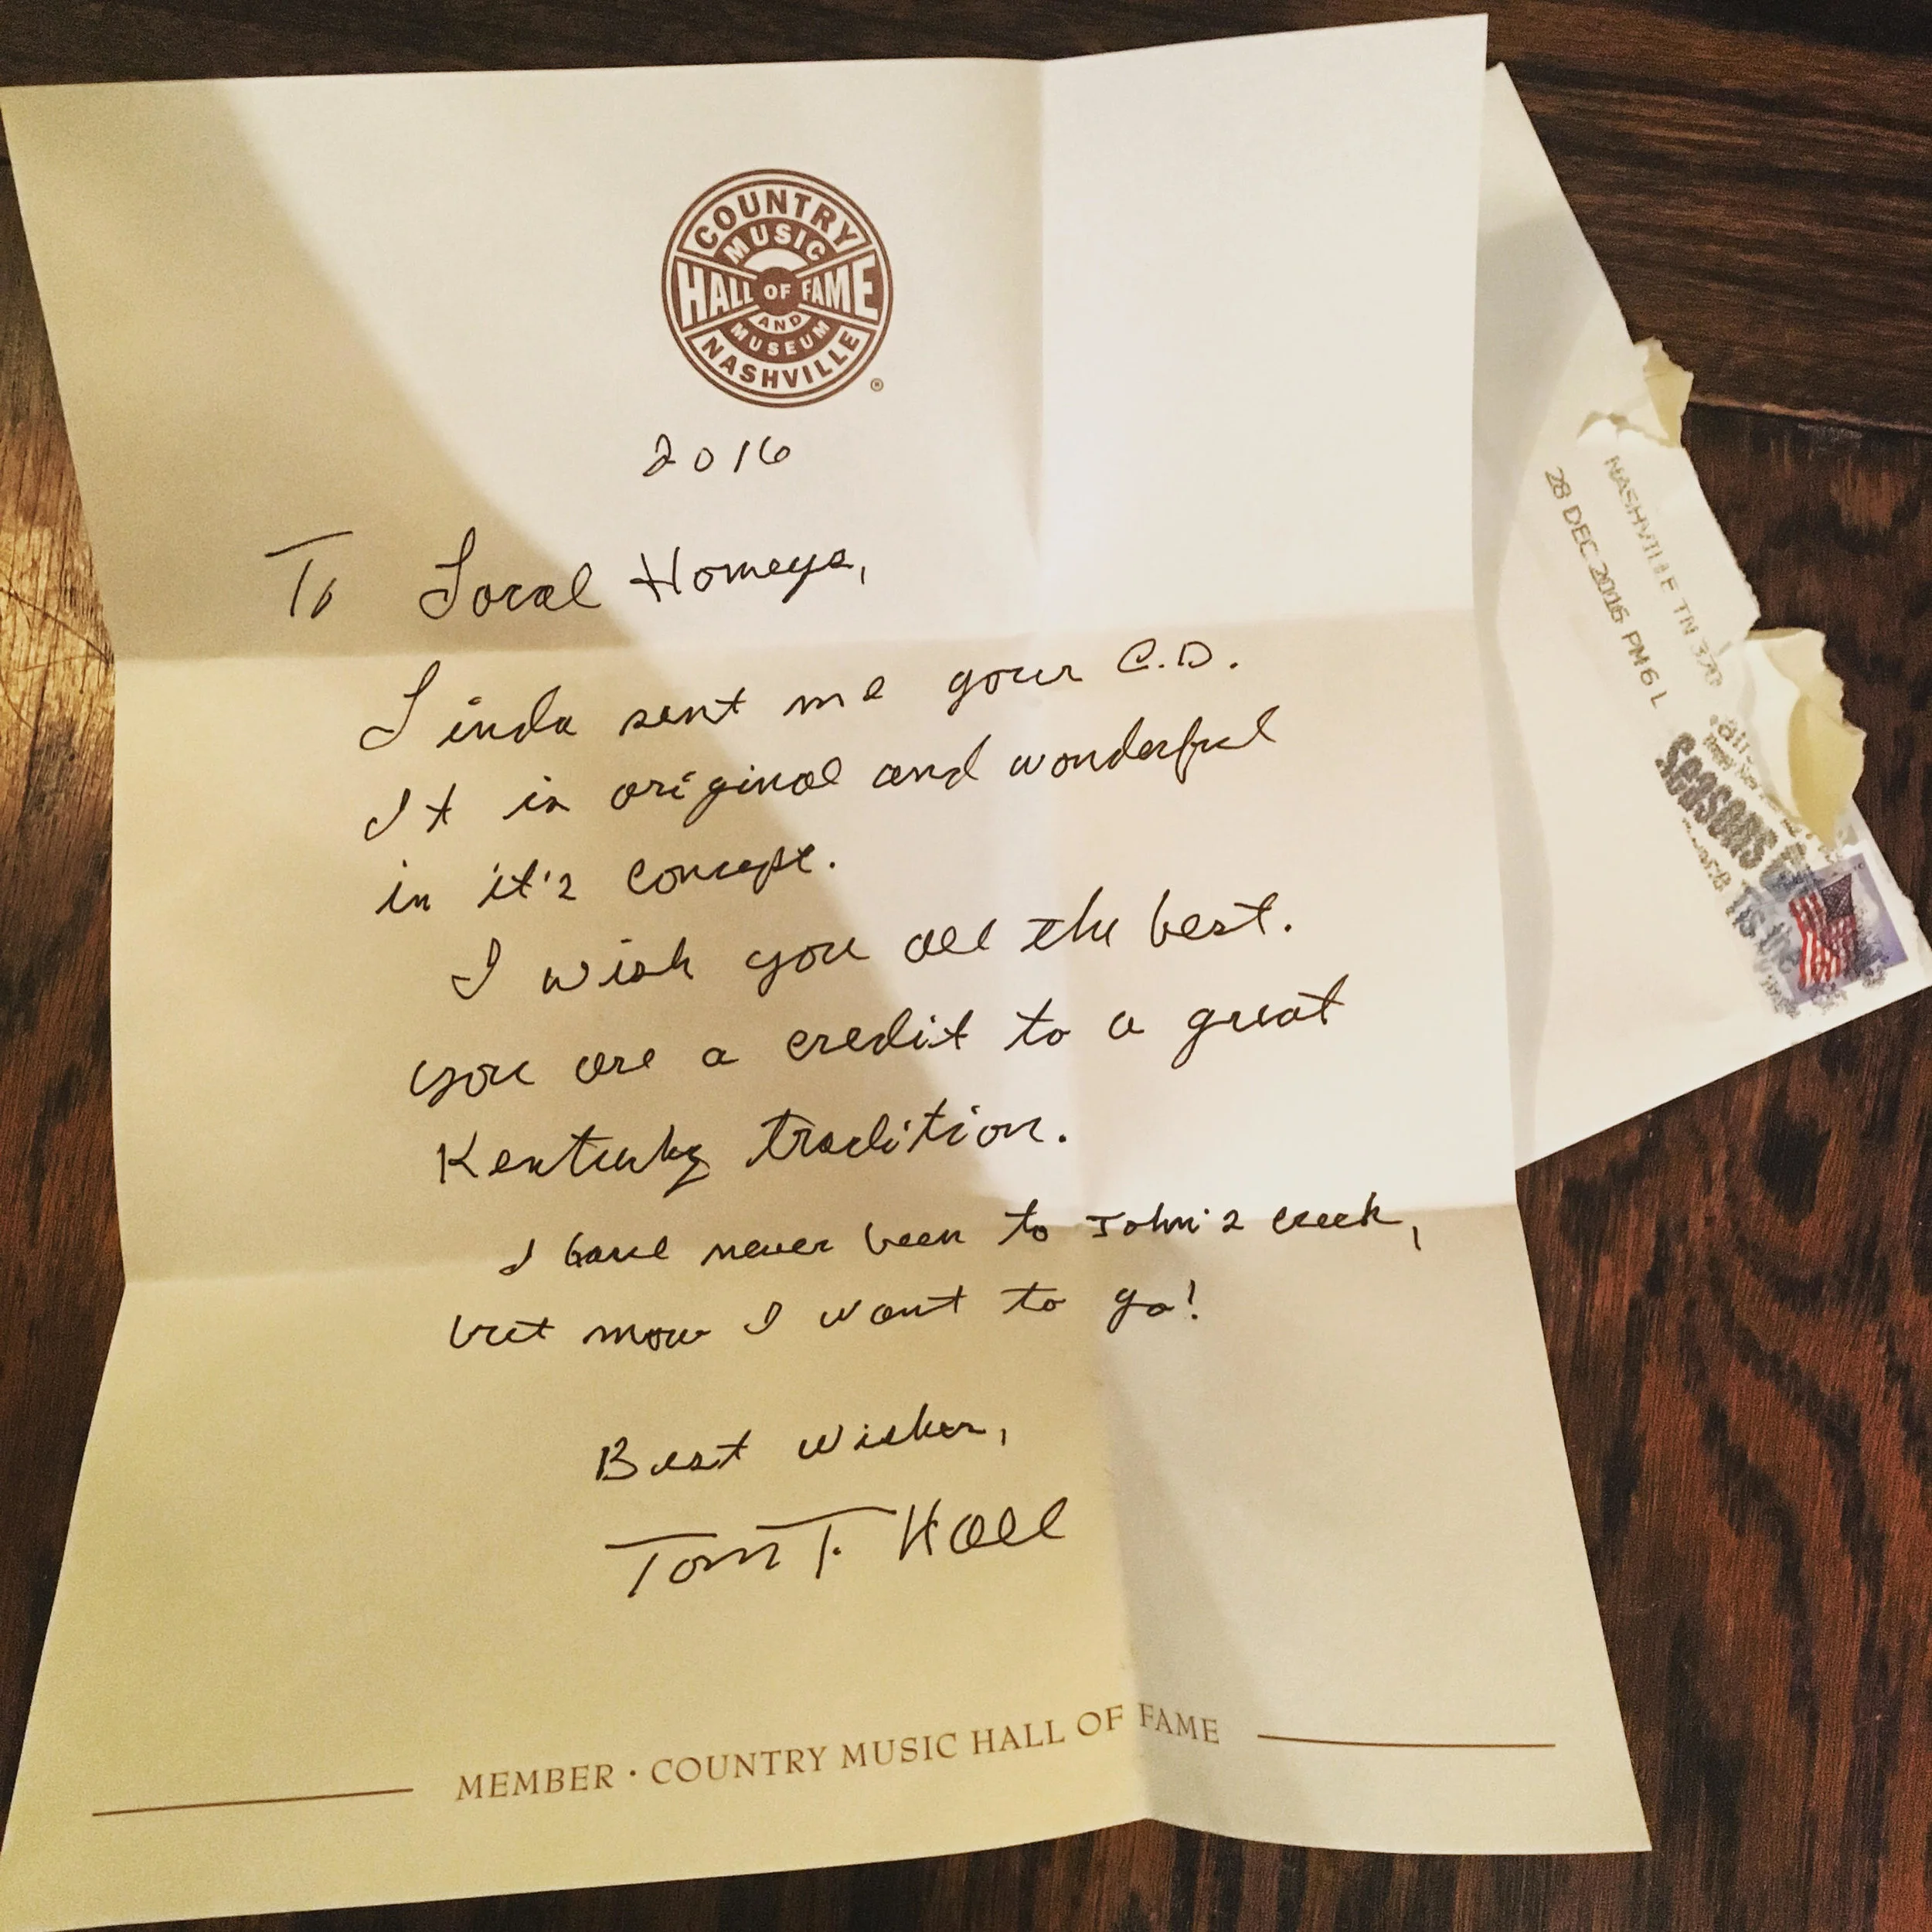 COUNTRY
MUSIC
HALL OF FAME
AND
MUSEUM
NASHVILLE
®
2016
To Local Homeys,
Linda sent me your C.D.
It is original and wonderful
in it's concept.
I wish you all the best.
you are a credit to a great
Kentucky tradition.
I have never been to John's creek,
but now I want to go!
Best Wishes,
Tom T. Hall
MEMBER · COUNTRY MUSIC HALL OF FAME
NASHVILLE TN 370
28 DEC 2016 PM 6 L